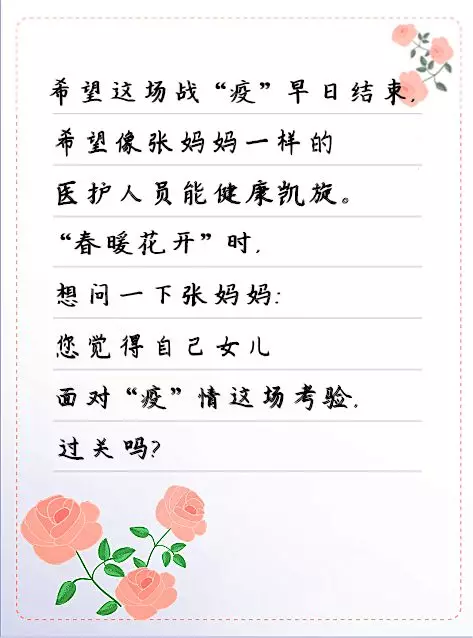 希望这场战“疫”早日结束,
希望像张妈妈一样的
医护人员能健康凯旋。
“春暖花开”时,
想问一下张妈妈:
您觉得自己女儿
面对“疫”情这场考验,
过关吗?